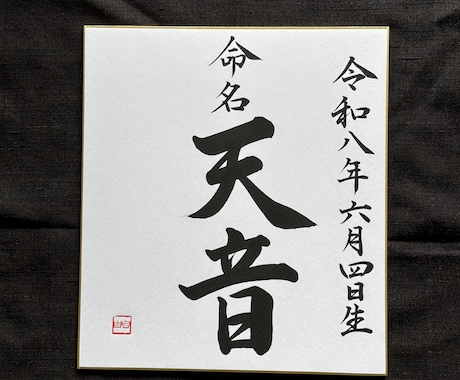 令和八年六月四日生
命名
天音